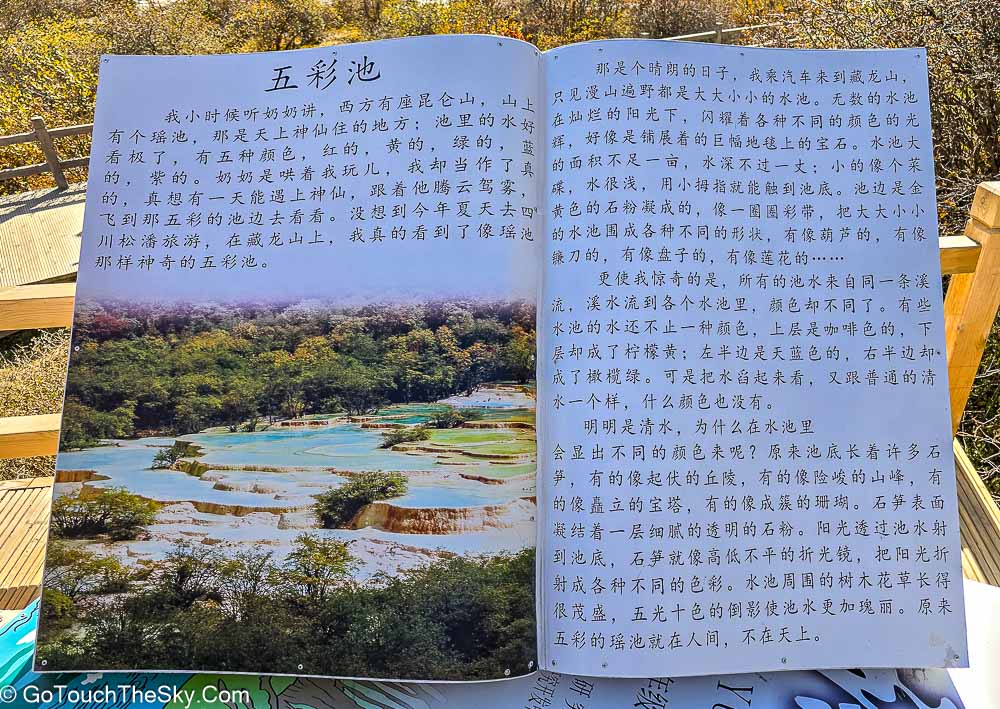 五彩池
我小时候听奶奶讲，西方有座昆仑山，山上
有个瑶池，那是天上神仙住的地方；池里的水好
看极了，有五种颜色，红的，黄的，绿的，蓝
的，紫的。奶奶是哄着我玩儿，我却当作了真
的，真想有一天能遇上神仙，跟着他腾云驾雾，
飞到那五彩的池边去看看。没想到今年夏天去四
川松潘旅游，在藏龙山上，我真的看到了像瑶池
那样神奇的五彩池。
那是个晴朗的日子，我乘汽车来到藏龙山，
只见漫山遍野都是大大小小的水池。无数的水池
在灿烂的阳光下，闪耀着各种不同的颜色的光
辉，好像是铺展着的巨幅地毯上的宝石。水池大
的面积不足一亩，水深不过一丈；小的像个菜
碟，水很浅，用小拇指就能触到池底。池边是金
黄色的石粉凝成的，像一圈圈彩带，把大大小小
的水池围成各种不同的形状，有像葫芦的，有像
镰刀的，有像盘子的，有像莲花的……
更使我惊奇的是，所有的池水来自同一条溪
流，溪水流到各个水池里，颜色却不同了。有些
水池的水还不止一种颜色，上层是咖啡色的，下
层却成了柠檬黄；左半边是天蓝色的，右半边却
成了橄榄绿。可是把水舀起来看，又跟普通的清
水一个样，什么颜色也没有。
明明是清水，为什么在水池里
会显出不同的颜色来呢？原来池底长着许多石
笋，有的像起伏的丘陵，有的像险峻的山峰，有
的像矗立的宝塔，有的像成簇的珊瑚。石笋表面
凝结着一层细腻的透明的石粉。阳光透过池水射
到池底，石笋就像高低不平的折光镜，把阳光折
射成各种不同的色彩。水池周围的树木花草长得
很茂盛，五光十色的倒影使池水更加瑰丽。原来
五彩的瑶池就在人间，不在天上。
© GoTouchTheSky.Com